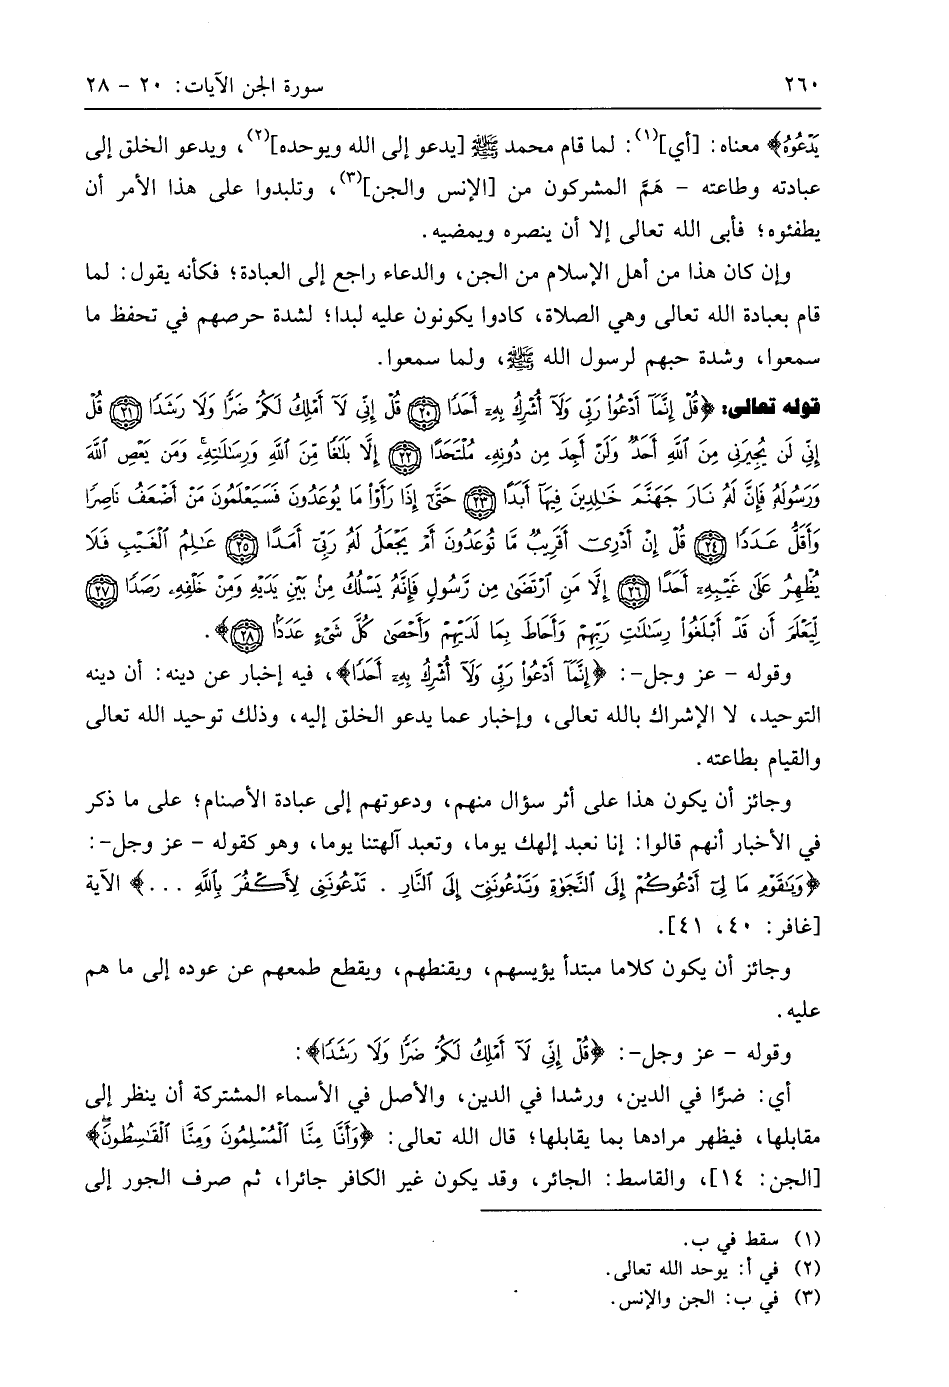 ٢٦٠ سورة الجن الآيات: ٢٠ - ٢٨
يَدْعُوهُ﴾ معناه: [أي](١): لما قام محمد ﷺ [يدعو إلى الله ويوحده](٢)، ويدعو الخلق إلى
عبادته وطاعته - هَمَّ المشركون من [الإنس والجن](٣)، وتلبدوا على هذا الأمر أن
يطفئوه؛ فأبى الله تعالى إلا أن ينصره ويمضيه.
وإن كان هذا من أهل الإسلام من الجن، والدعاء راجع إلى العبادة؛ فكأنه يقول: لما
قام بعبادة الله تعالى وهي الصلاة، كادوا يكونون عليه لبدا؛ لشدة حرصهم في تحفظ ما
سمعوا، وشدة حبهم لرسول الله ﷺ، ولما سمعوا.
قوله تعالى: ﴿قُلْ إِنَّمَآ أَدْعُوا۟ رَبِّى وَلَآ أُشْرِكُ بِهِۦٓ أَحَدًا ۝٢٠ قُلْ إِنِّى لَآ أَمْلِكُ لَكُمْ ضَرًّا وَلَا رَشَدًا ۝٢١ قُلْ
إِنِّى لَن يُجِيرَنِى مِنَ ٱللَّهِ أَحَدٌ وَلَنْ أَجِدَ مِن دُونِهِۦ مُلْتَحَدًا ۝٢٢ إِلَّا بَلَٰغًا مِّنَ ٱللَّهِ وَرِسَٰلَٰتِهِۦ ۚ وَمَن يَعْصِ ٱللَّهَ
وَرَسُولَهُۥ فَإِنَّ لَهُۥ نَارَ جَهَنَّمَ خَٰلِدِينَ فِيهَآ أَبَدًا ۝٢٣ حَتَّىٰٓ إِذَا رَأَوْا۟ مَا يُوعَدُونَ فَسَيَعْلَمُونَ مَنْ أَضْعَفُ نَاصِرًا
وَأَقَلُّ عَدَدًا ۝٢٤ قُلْ إِنْ أَدْرِىٓ أَقَرِيبٌ مَّا تُوعَدُونَ أَمْ يَجْعَلُ لَهُۥ رَبِّىٓ أَمَدًا ۝٢٥ عَٰلِمُ ٱلْغَيْبِ فَلَا
يُظْهِرُ عَلَىٰ غَيْبِهِۦٓ أَحَدًا ۝٢٦ إِلَّا مَنِ ٱرْتَضَىٰ مِن رَّسُولٍ فَإِنَّهُۥ يَسْلُكُ مِنۢ بَيْنِ يَدَيْهِ وَمِنْ خَلْفِهِۦ رَصَدًا ۝٢٧
لِّيَعْلَمَ أَن قَدْ أَبْلَغُوا۟ رِسَٰلَٰتِ رَبِّهِمْ وَأَحَاطَ بِمَا لَدَيْهِمْ وَأَحْصَىٰ كُلَّ شَىْءٍ عَدَدًۢا ۝٢٨﴾.
وقوله - عز وجل-: ﴿إِنَّمَآ أَدْعُوا۟ رَبِّى وَلَآ أُشْرِكُ بِهِۦٓ أَحَدًا﴾، فيه إخبار عن دينه: أن دينه
التوحيد، لا الإشراك بالله تعالى، وإخبار عما يدعو الخلق إليه، وذلك توحيد الله تعالى
والقيام بطاعته.
وجائز أن يكون هذا على أثر سؤال منهم، ودعوتهم إلى عبادة الأصنام؛ على ما ذكر
في الأخبار أنهم قالوا: إنا نعبد إلهك يوما، وتعبد آلهتنا يوما، وهو كقوله - عز وجل-:
﴿وَيَٰقَوْمِ مَا لِىٓ أَدْعُوكُمْ إِلَى ٱلنَّجَوٰةِ وَتَدْعُونَنِىٓ إِلَى ٱلنَّارِ . تَدْعُونَنِى لِأَكْفُرَ بِٱللَّهِ ...﴾ الآية
[غافر: ٤٠، ٤١].
وجائز أن يكون كلاما مبتدأ يؤيسهم، ويقنطهم، ويقطع طمعهم عن عوده إلى ما هم
عليه.
وقوله - عز وجل-: ﴿قُلْ إِنِّى لَآ أَمْلِكُ لَكُمْ ضَرًّا وَلَا رَشَدًا﴾:
أي: ضرًّا في الدين، ورشدا في الدين، والأصل في الأسماء المشتركة أن ينظر إلى
مقابلها، فيظهر مرادها بما يقابلها؛ قال الله تعالى: ﴿وَأَنَّا مِنَّا ٱلْمُسْلِمُونَ وَمِنَّا ٱلْقَٰسِطُونَ ۖ﴾
[الجن: ١٤]، والقاسط: الجائر، وقد يكون غير الكافر جائرا، ثم صرف الجور إلى
(١) سقط في ب.
(٢) في أ: يوحد الله تعالى.
(٣) في ب: الجن والإنس.